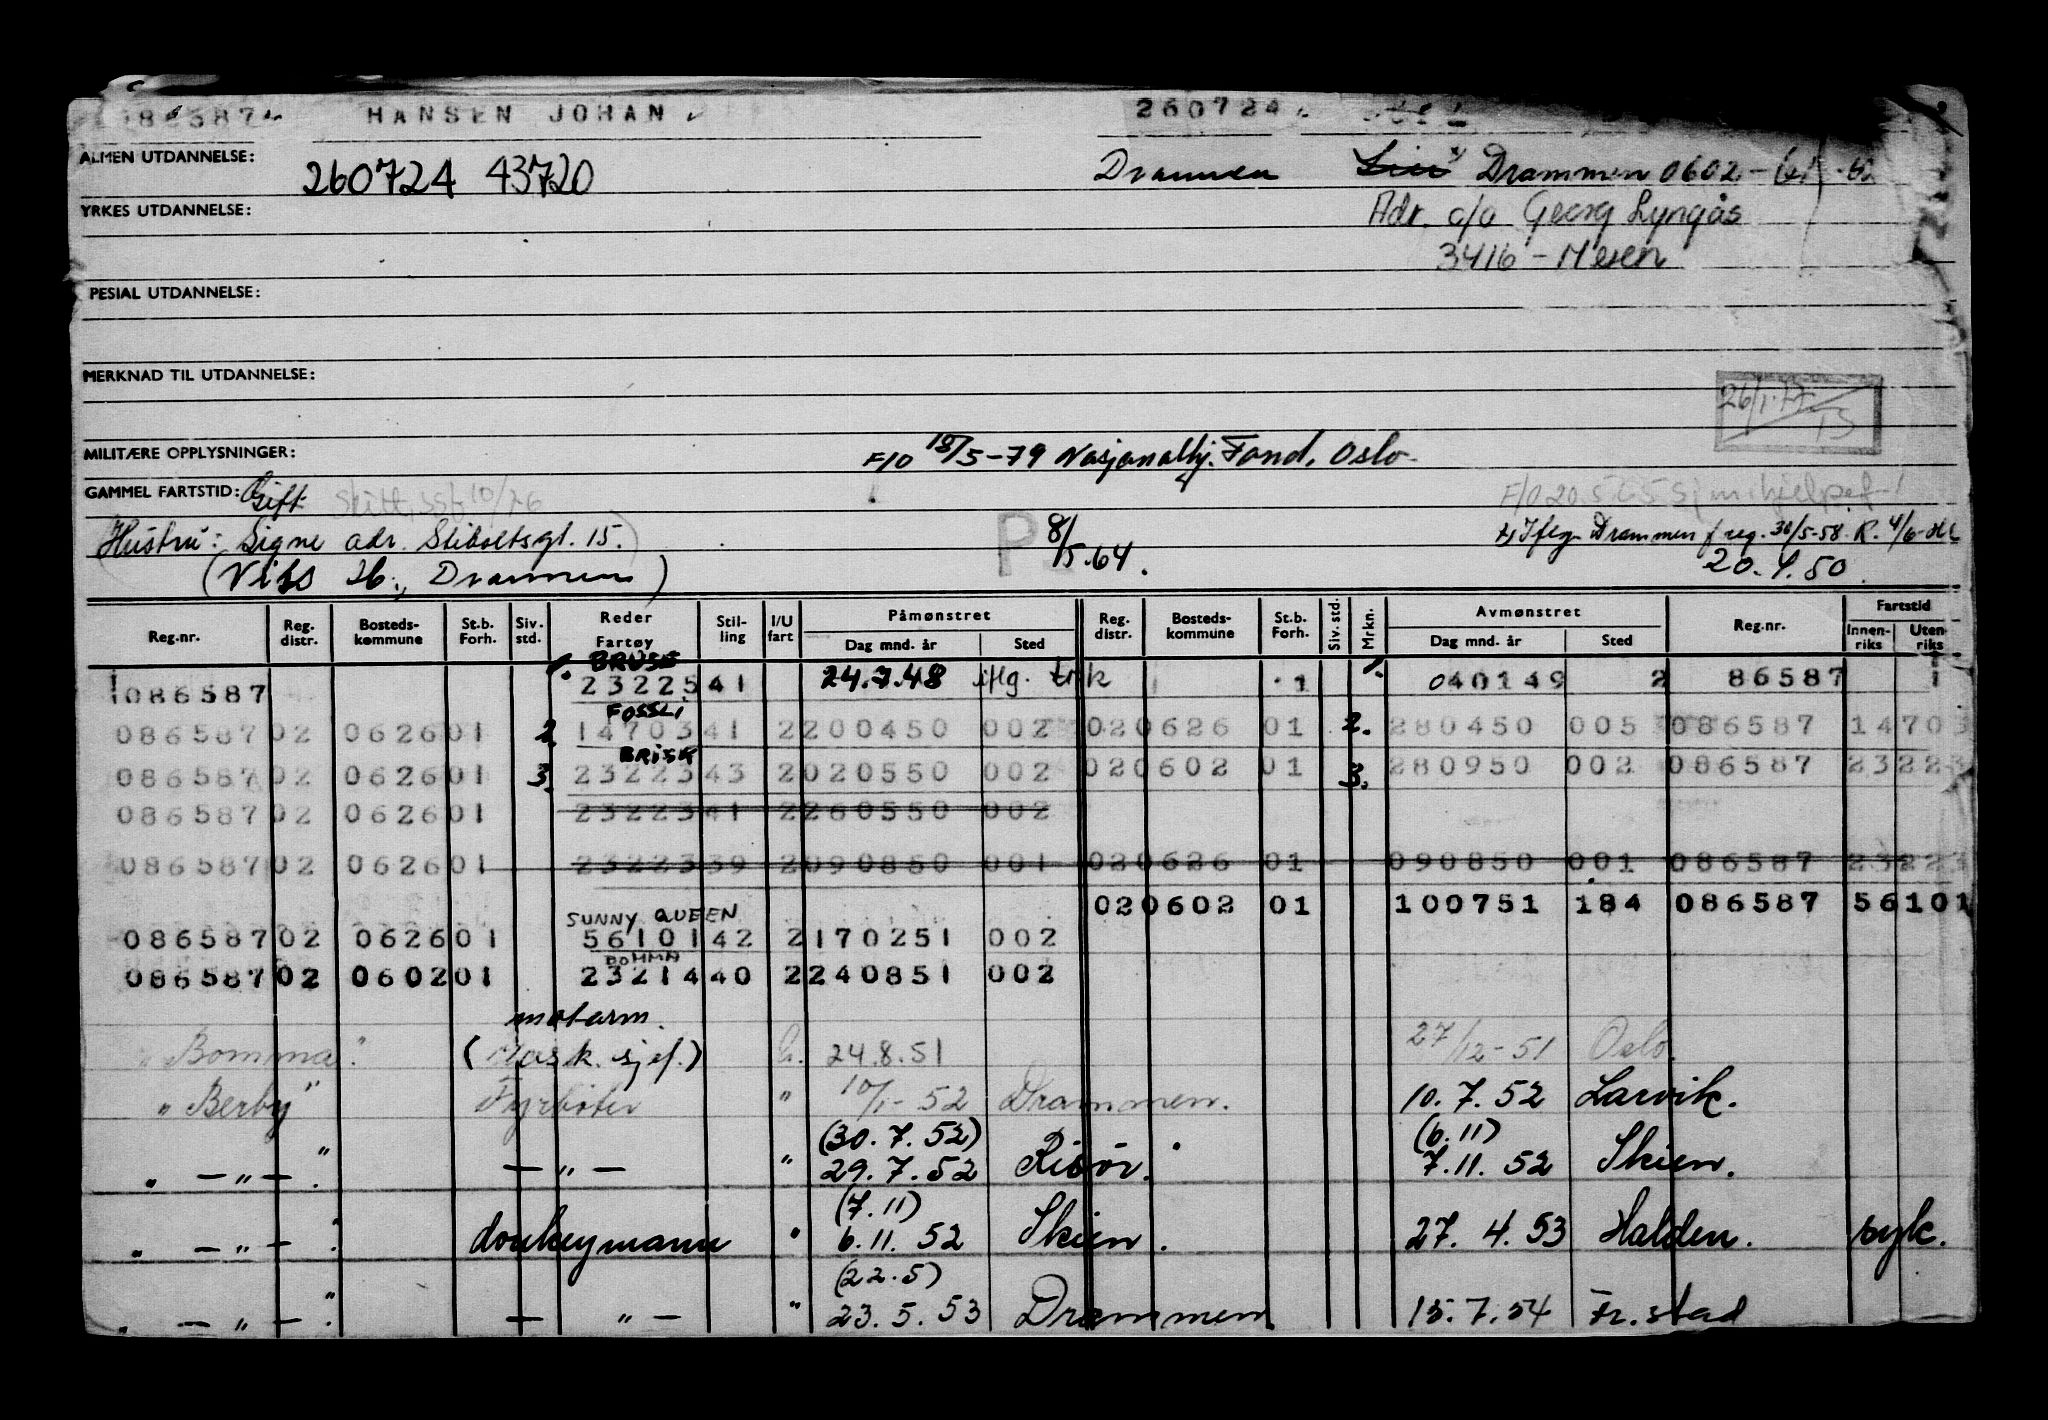 HANSEN JOHAN 260724
ALMEN UTDANNELSE: 260724 43720 Drammen Lier Drammen 0602
YRKES UTDANNELSE: Adr. c/o Georg Lyngås
3416 -
PESIAL UTDANNELSE:
MERKNAD TIL UTDANNELSE:
26/1-77
TS
MILITÆRE OPPLYSNINGER: F/O 18/5-79 Nasjonalhj. Fond, Oslo
GAMMEL FARTSTID: Gift 10/76 F/O 20.5.65
Hustru: Signe adr. Stiboltsgt. 15. P 8/5.64. x) Iflg. Drammen f reg. 30/5-58. R. 4/6-
(Drammen) 20.4.50
Reg.nr. Reg. distr. Bosteds- kommune St.b. Forh. Siv. std. Reder Fartøy Stil- ling I/U fart Påmønstret Dag mnd. år Sted Reg. distr. Bosteds- kommune St.b. Forh. Siv. std. Mrkn. Avmønstret Dag mnd. år Sted Reg.nr. Fartstid Innen- riks Uten- riks
1. BRUSE 1.
086587 23225 41 24.7.48 iflg. trk 1 040149 2 86587 1
FOSSLI
086587 02 0626 01 2. 14703 41 2 200450 002 02 0626 01 2. 280450 005 086587 14703
BRISK
086587 02 0626 01 3. 23223 43 2 020550 002 02 0602 01 3. 280950 002 086587 23223
086587 02 0626 01 23223 41 2 260550 002
086587 02 0626 01 23223 39 2 090850 001 02 0626 01 090850 001 086587 23223
02 0602 01 100751 184 086587 56101
SUNNY QUEEN
086587 02 0626 01 56101 42 2 170251 002
BOMMA
086587 02 0602 01 23214 40 2 240851 002
motorm.
"Bomma" (Mask. sjef.) 24.8.51 27/12-51 Oslo.
"Berby" Fyrbøter " 10/1-52 Drammen. 10.7.52 Larvik.
(30.7.52) (6.11)
" — " — " — " — " 29.7.52 Risør. 7.11.52 Skien.
(7.11)
" — " — " donkeymann " 6.11.52 Skien. 27.4.53 Halden. syk.
(22.5)
" — " — " — " — " 23.5.53 Drammen 15.7.54 Fr.stad